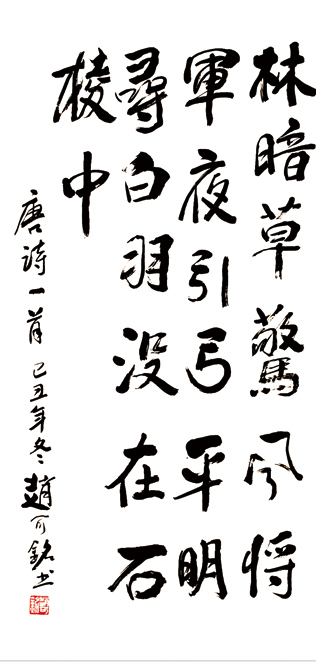 林暗草驚風將
軍夜引弓平明
尋白羽沒在石
棱中
唐詩一首 己丑年冬 趙可銘书